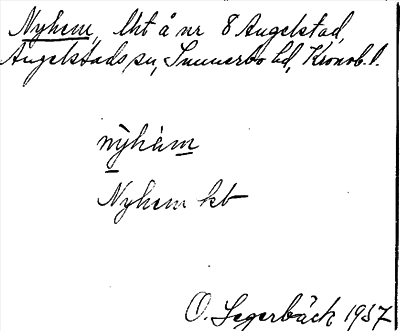 Nyhem, lht å nr 8 Angelstad,
Angelstads sn, Sunnerbo hd, Kronob. l.
nỳhèm
Nyhem kb
O. Segerbäck 1937